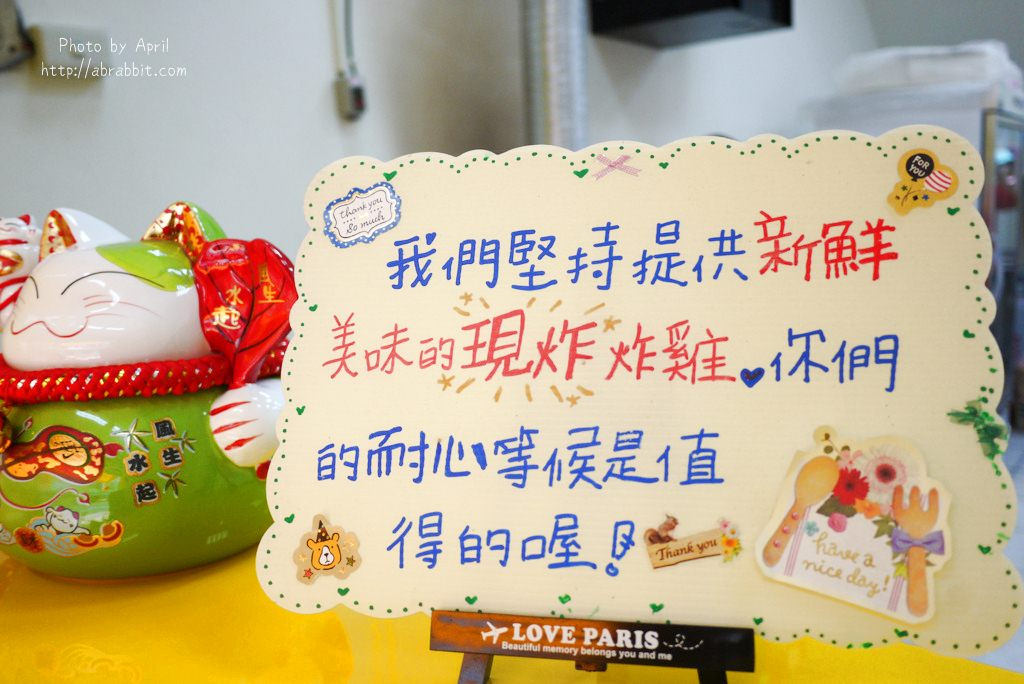 Photo by April
http://abrabbit.com
thank you
so much
FOR
YOU
我們堅持提供新鮮
美味的現炸炸雞 你們
的耐心等候是值
得的喔!
Thank you
have a
nice day!
風生
水起
LOVE PARIS
Beautiful memory belongs you and me